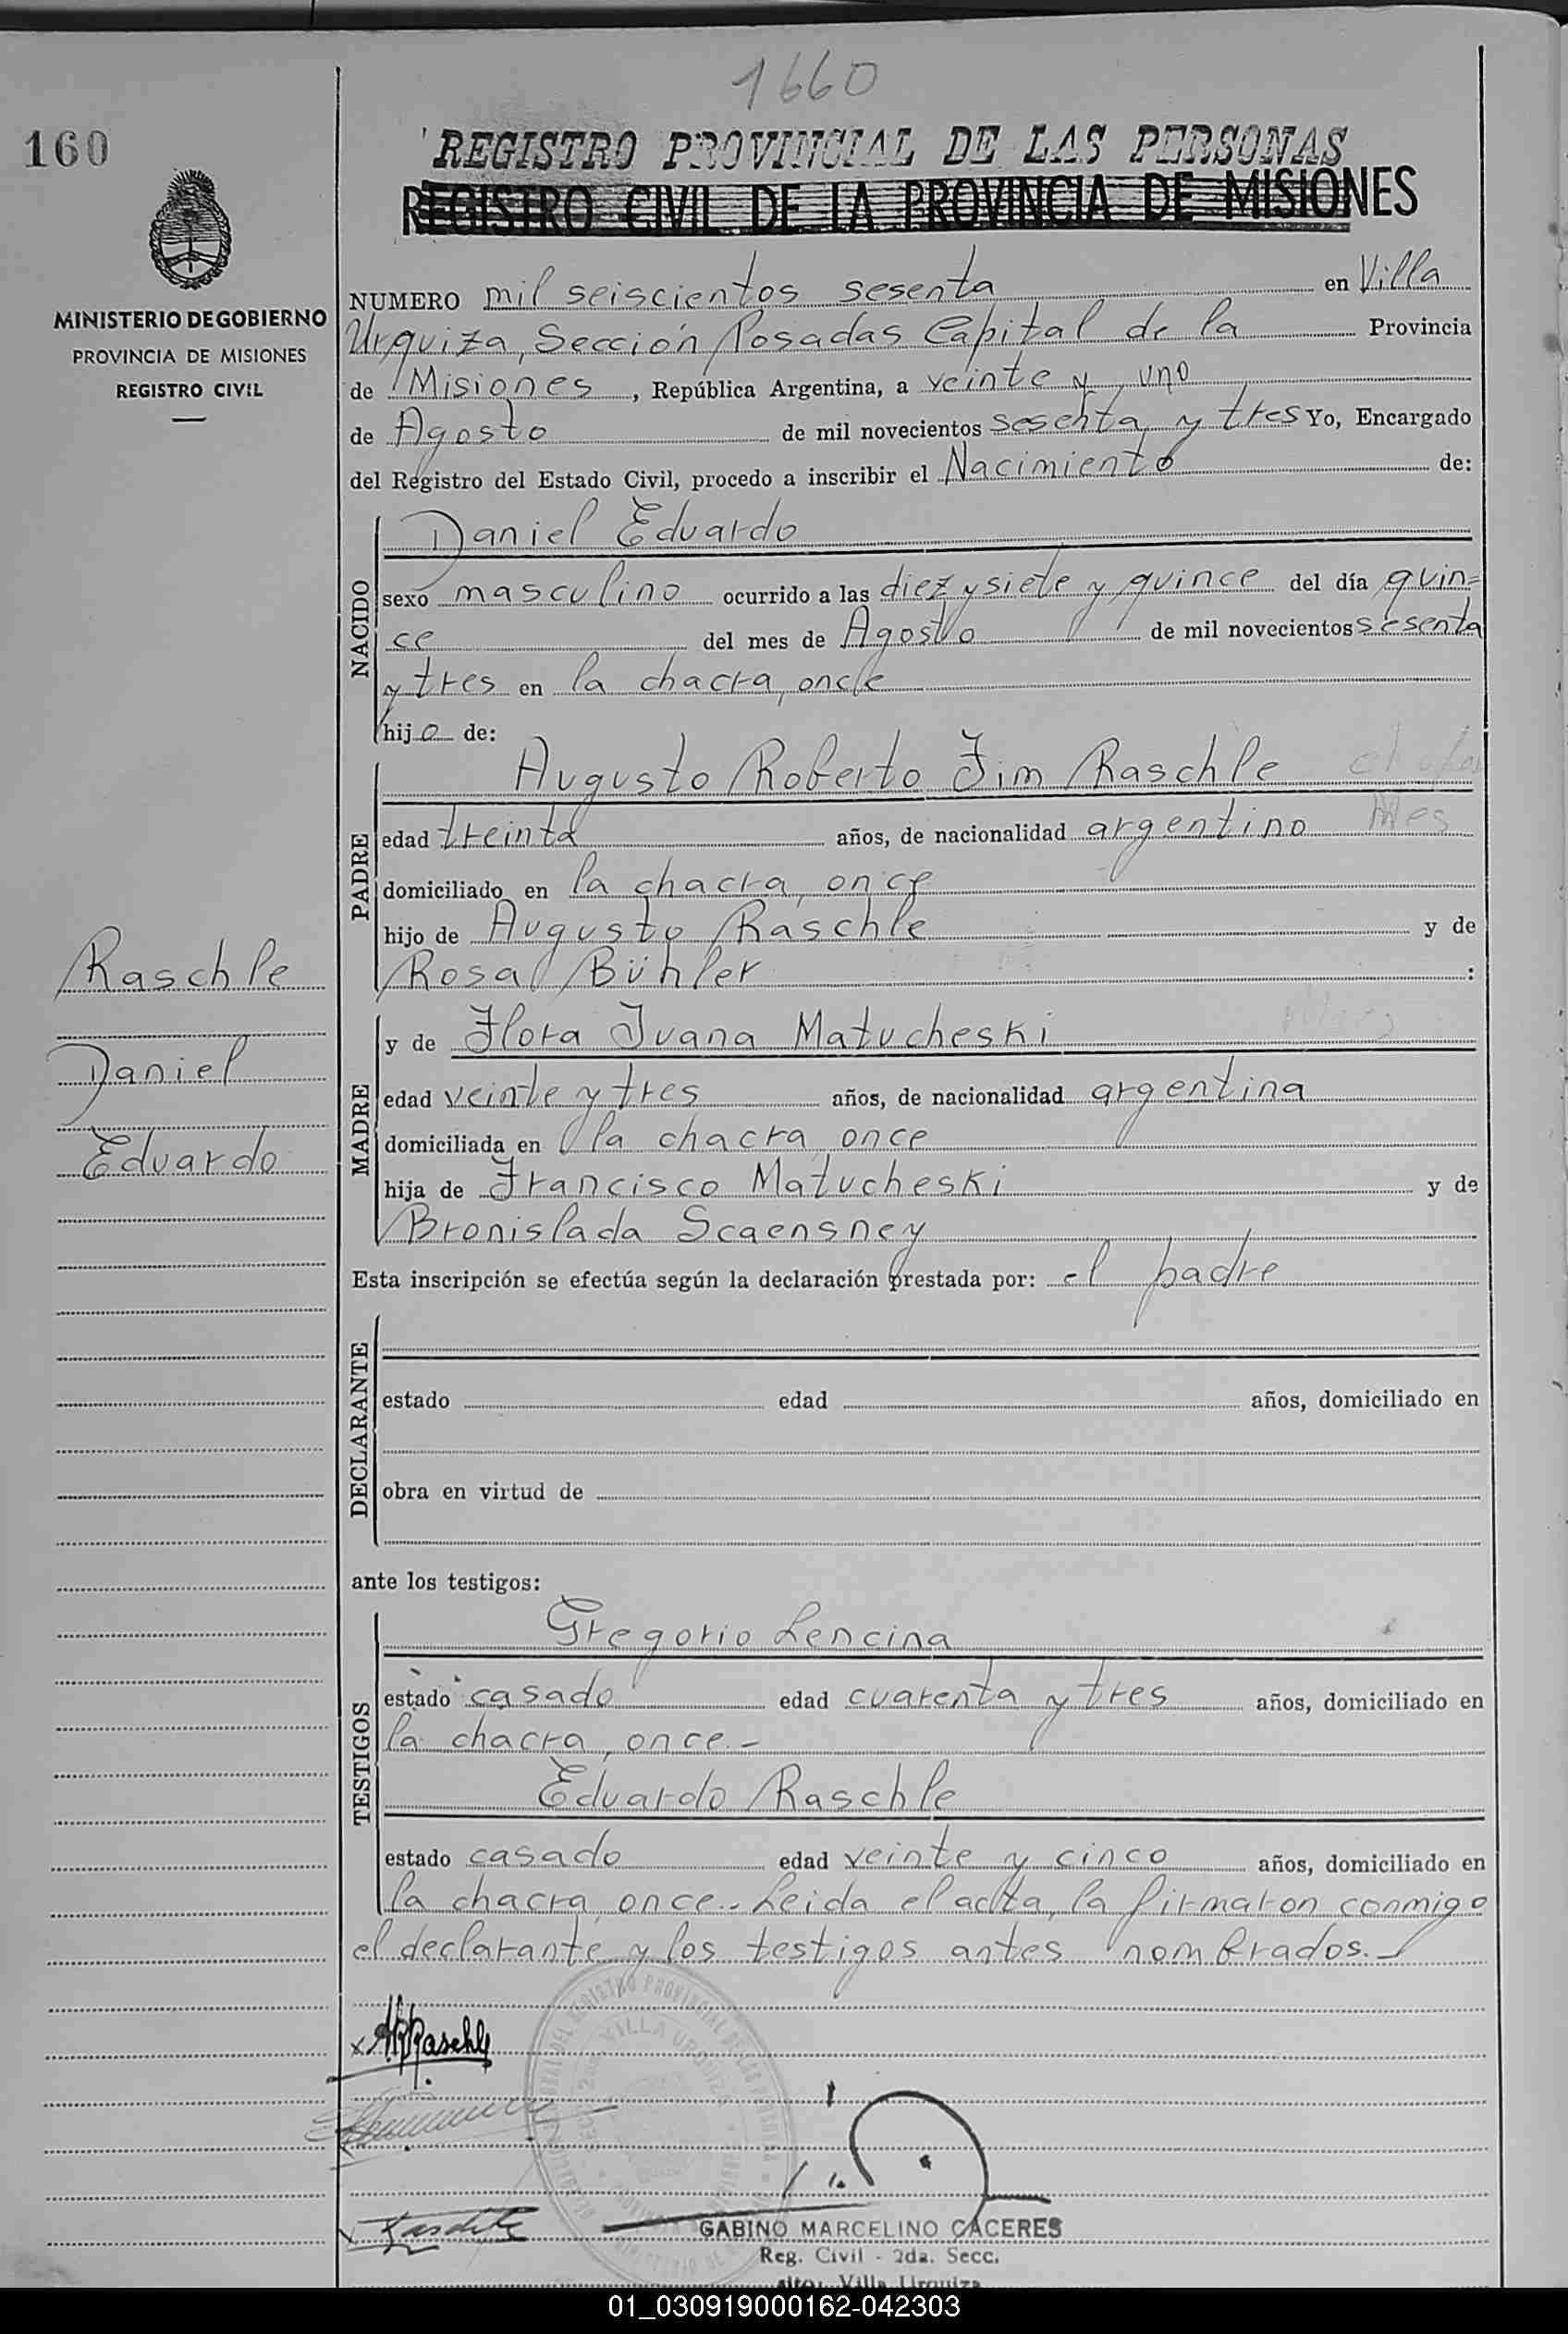 1660
160
REGISTRO PROVINCIAL DE LAS PERSONAS
REGISTRO CIVIL DE LA PROVINCIA DE MISIONES
MINISTERIO DE GOBIERNO
PROVINCIA DE MISIONES
REGISTRO CIVIL
NUMERO mil seiscientos sesenta en Villa
Urquiza, Sección Posadas Capital de la Provincia
de Misiones, República Argentina, a veinte y uno
de Agosto de mil novecientos sesenta y tres Yo, Encargado
del Registro del Estado Civil, procedo a inscribir el Nacimiento de:
NACIDO
Daniel Eduardo
sexo masculino ocurrido a las diez y siete y quince del día quin=
ce del mes de Agosto de mil novecientos sesenta
y tres en la chacra, once
hijo de:
PADRE
Augusto Roberto Jim Raschle
edad treinta años, de nacionalidad argentino
domiciliado en la chacra, once
hijo de Augusto Raschle y de
Rosa Bühler :
MADRE
y de Flora Juana Matucheski
edad veinte y tres años, de nacionalidad argentina
domiciliada en la chacra once
hija de Francisco Matucheski y de
Bronislada Scaensney
Raschle
Daniel
Eduardo
Esta inscripción se efectúa según la declaración prestada por: el padre
DECLARANTE
estado edad años, domiciliado en
obra en virtud de
ante los testigos:
TESTIGOS
Gregorio Lencina
estado casado edad cuarenta y tres años, domiciliado en
la chacra, once.-
Eduardo Raschle
estado casado edad veinte y cinco años, domiciliado en
la chacra, once.- Leida el acta, la firmaron conmigo
el declarante y los testigos antes nombrados.-
x ARRaschle
VILLA URQUIZA
x Raschle
GABINO MARCELINO CACERES
Reg. Civil - 2da. Secc.
sito: Villa Urquiza
01_030919000162-042303